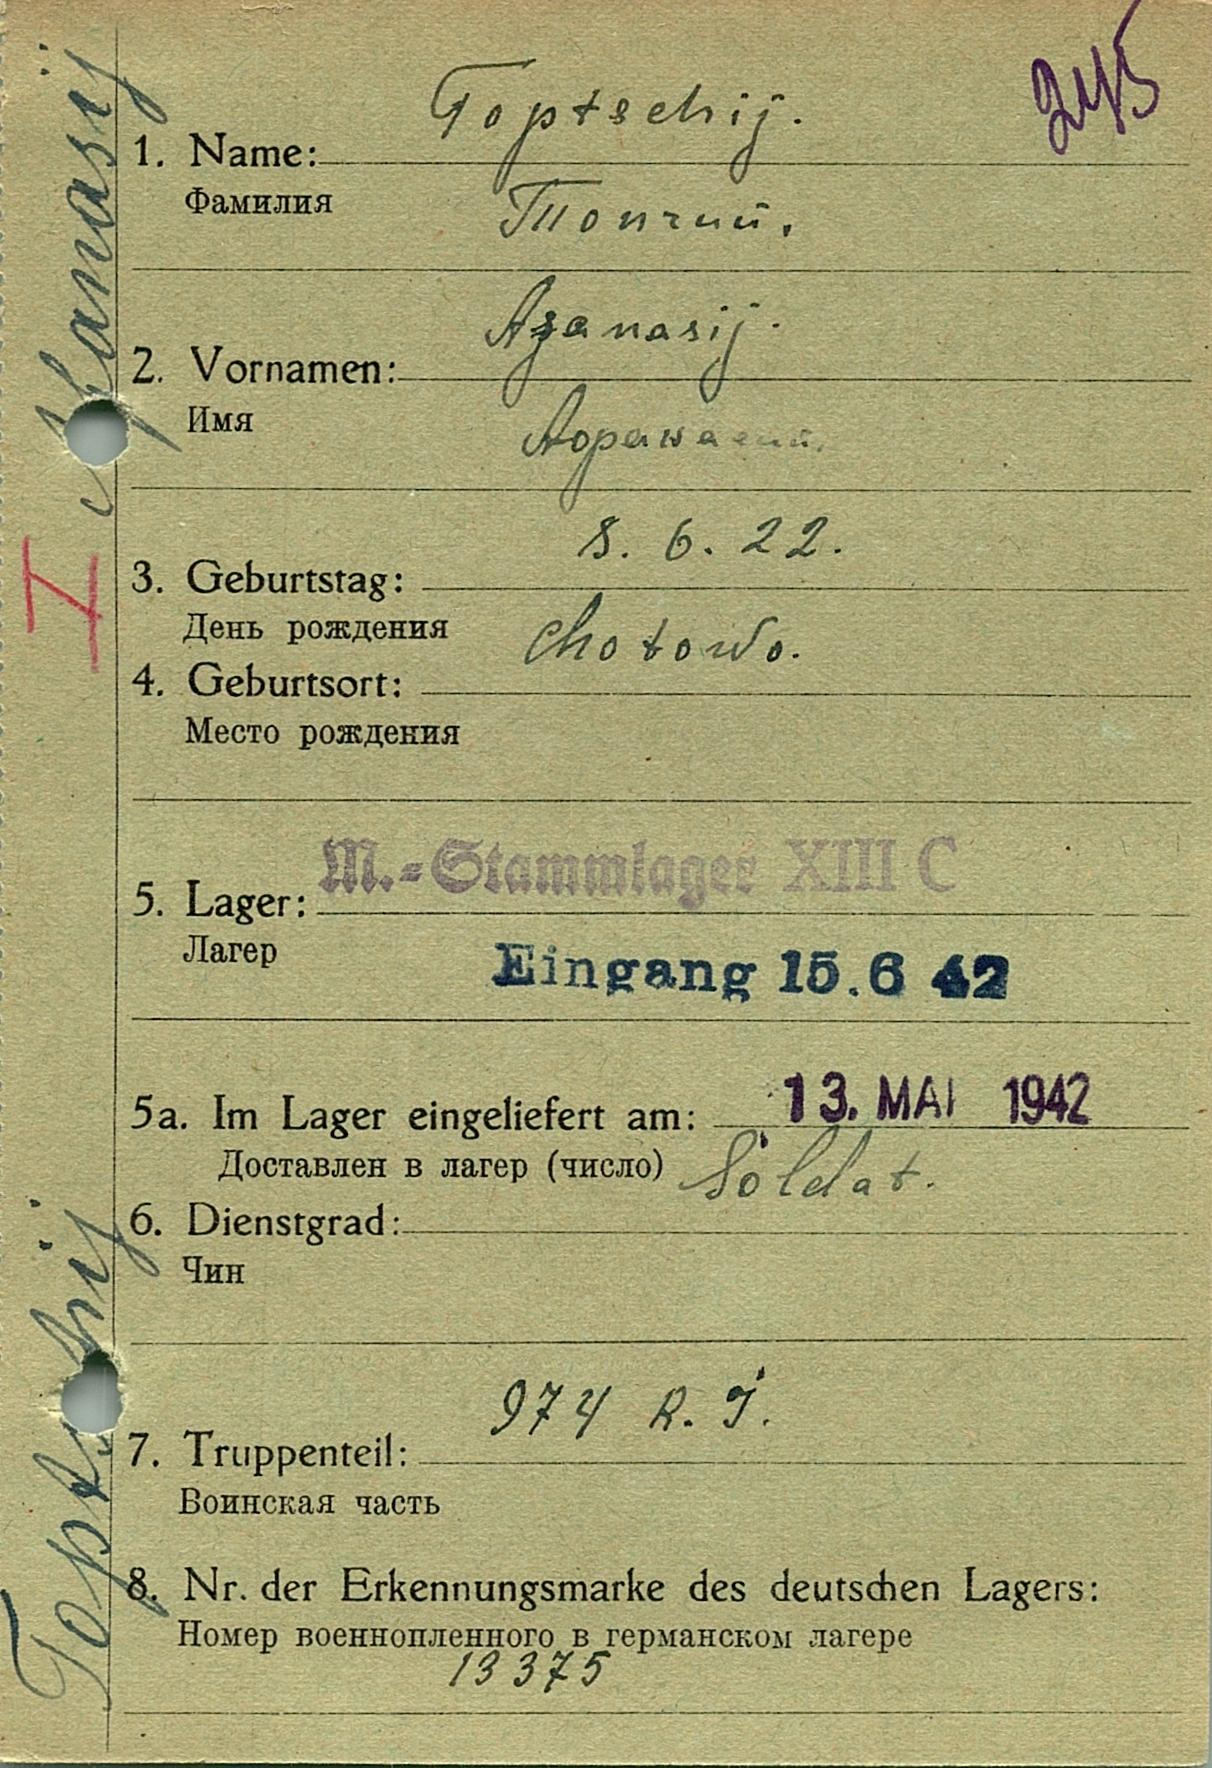 245
Toptschij.
1. Name:
Фамилия
Топчий.
Afanasij.
2. Vornamen:
Имя
8. 6. 22.
3. Geburtstag:
День рождения
Chotowo.
4. Geburtsort:
Место рождения
M.-Stammlager XIII C
5. Lager:
Лагер
Eingang 15.6 42
13. MAI 1942
5a. Im Lager eingeliefert am:
Доставлен в лагер (число)
Soldat.
6. Dienstgrad:
Чин
974 R. I.
7. Truppenteil:
Воинская часть
8. Nr. der Erkennungsmarke des deutschen Lagers:
Номер военнопленного в германском лагере
13375
Toptschij Afanasij
I